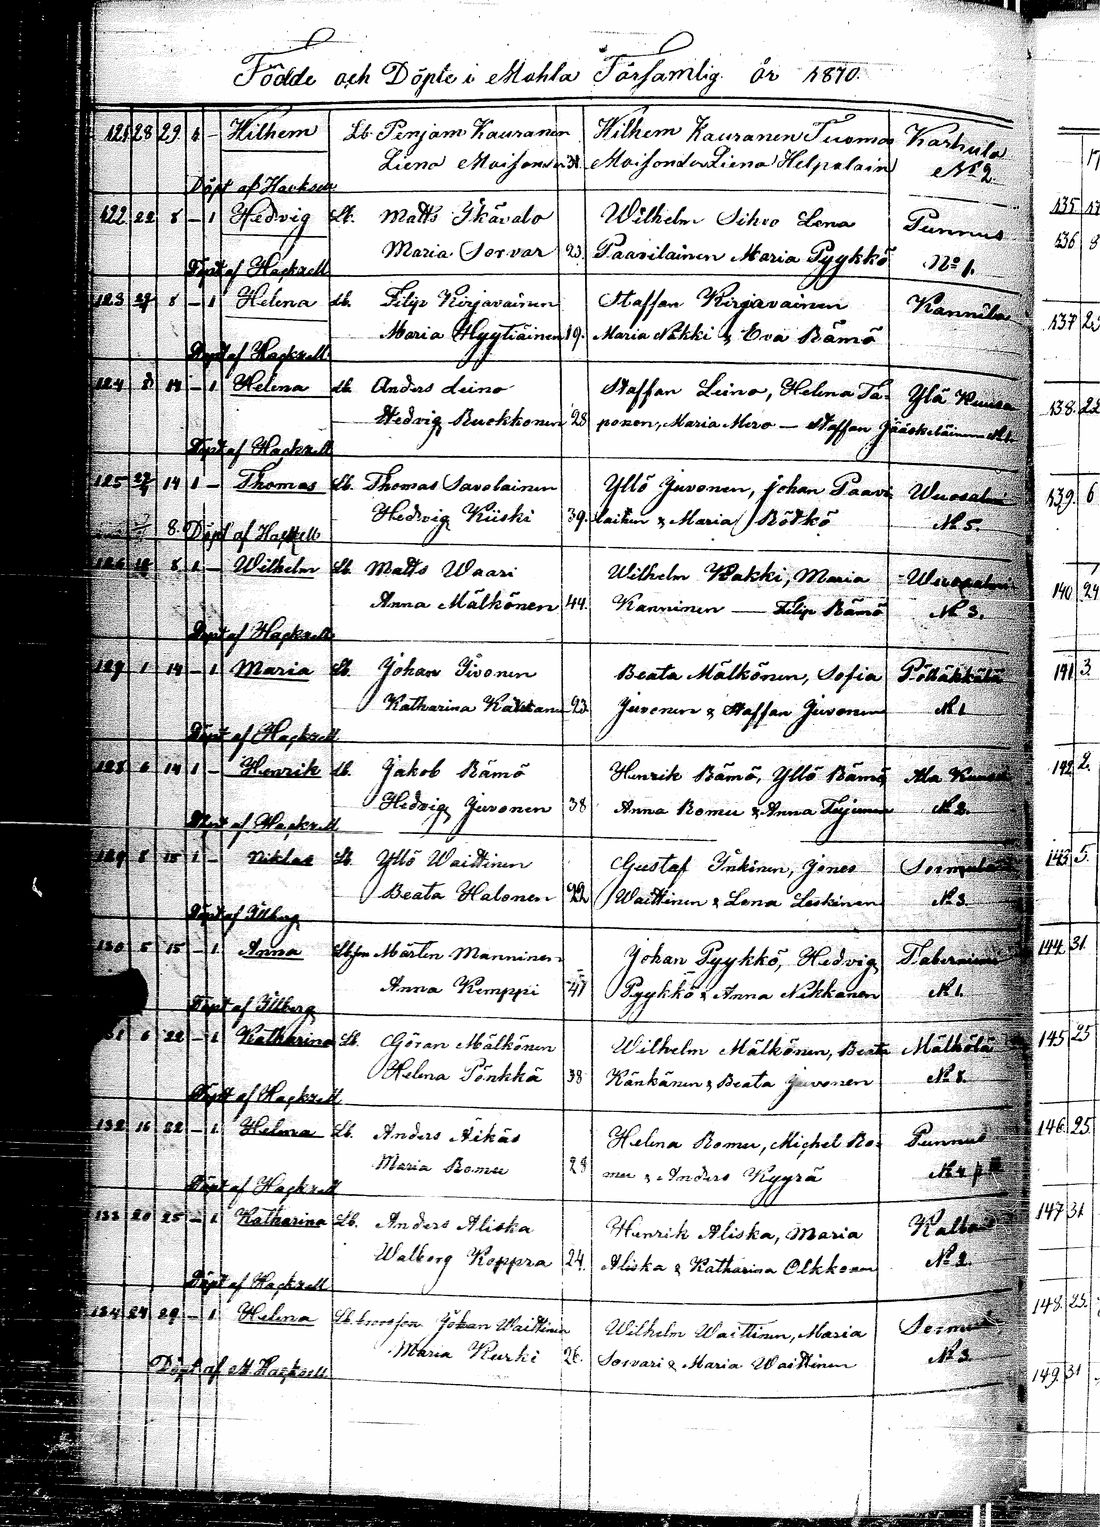 Födde och Döpte i Mohla Församlig. år 1870.
121 28 29. 1 - Wilhem Lb. Penjam Kauranen Wilhem Kauranen Tuomas Karhula
Liena Moisander 31. Moisonder Liena Helpalain No 2.
Döpt af Hacksell
122 22 8 - 1 Hedvig Lb. Matts Ikävalo Wilhelm Sihvo Lena Punnus
Maria Sorvar 23. Paavilainen Maria Pyykkö No 1.
Döpt af Hackzell
123 8 - 1 Helena Lb. Filip Kirjavainen Staffan Kirjavainen Kannila
Maria Hyytiäinen 19. Maria Nokki & Eva Rämö
Döpt af Hackzell
124 8 14 - 1 Helena Lb. Anders Leino Staffan Leino, Helena Ta- Ylä Kuusa
Hedvig Ruokkonen 28 ponen, Maria Mero — Staffan Jääskeläinen No 1.
Döpt af Hackzell
125 27 14 1 - Thomas Lb. Thomas Savolainen Yllö Juvonen, Johan Paavi Wuosalmi
Hedvig Kiiski 39. laiken & Maria Rötkö No 5.
8. Döpt af Hackzell
126 8 1 - Wilhelm Lb. Matts Waari Wilhelm Kakki, Maria Wuosalmi
Anna Mälkönen 44. Kanninen — Filip Rämö No 3.
Döpt af Hackzell
127 1 14 - 1 Maria Lb. Johan Iivonen Beata Mälkönen, Sofia Pölläkkälä
Katharina 23. Juvonen & Staffan Juvonen No 1
Döpt af Hackzell
128 6 14 1 - Henrik Lb. Jakob Rämö Henrik Rämö, Yllö Rämö, Ala Kuusa
Hedvig Juvonen 38 Anna Romu & Anna No 2.
Döpt af Hackzell
129 8 15 1 - Niklas Lb. Yllö Waittinen Gustaf Inkinen, Jonas
Beata Halonen 22 Waittinen & Lena Leskinen No 3
Döpt af Illberg
130 5 15 - 1 Anna Mårten Manninen Johan Pyykkö, Hedvig
Anna Kemppi 41 Pyykkö & Anna Nikkanen No 1.
Döpt af Illberg
131 6 22 - 1 Katharina Lb. Göran Mälkönen Wilhelm Mälkönen, Beata Mälkölä
Helena Pönkkä 38 Känkänen & Beata Juvonen No 8.
Döpt af Hackzell
132 16 22 - 1 Helena Lb. Anders Äikäs Helena Romu, Michel Ro- Punnus
Maria Romu 28 mu & Anders Kyyrä No 4
Döpt af Hackzell
133 20 25 - 1 Katharina Lb. Anders Aliska Henrik Aliska, Maria
Walborg Koppra 24. Aliska & Katharina Olkkonen No 2.
Döpt af Hackzell
134 24 29 - 1 Helena Lb. Johan Waittinen Wilhelm Waittinen, Maria
Maria Kurki 26. Sorvari & Maria Waittinen No 3
Döpt af M Hackzell
135
136 8
137 22
138. 22
139. 6
140 24
141 3.
142 2.
143 5.
144 31.
145 25
146 25.
147 31.
148. 23.
149. 31